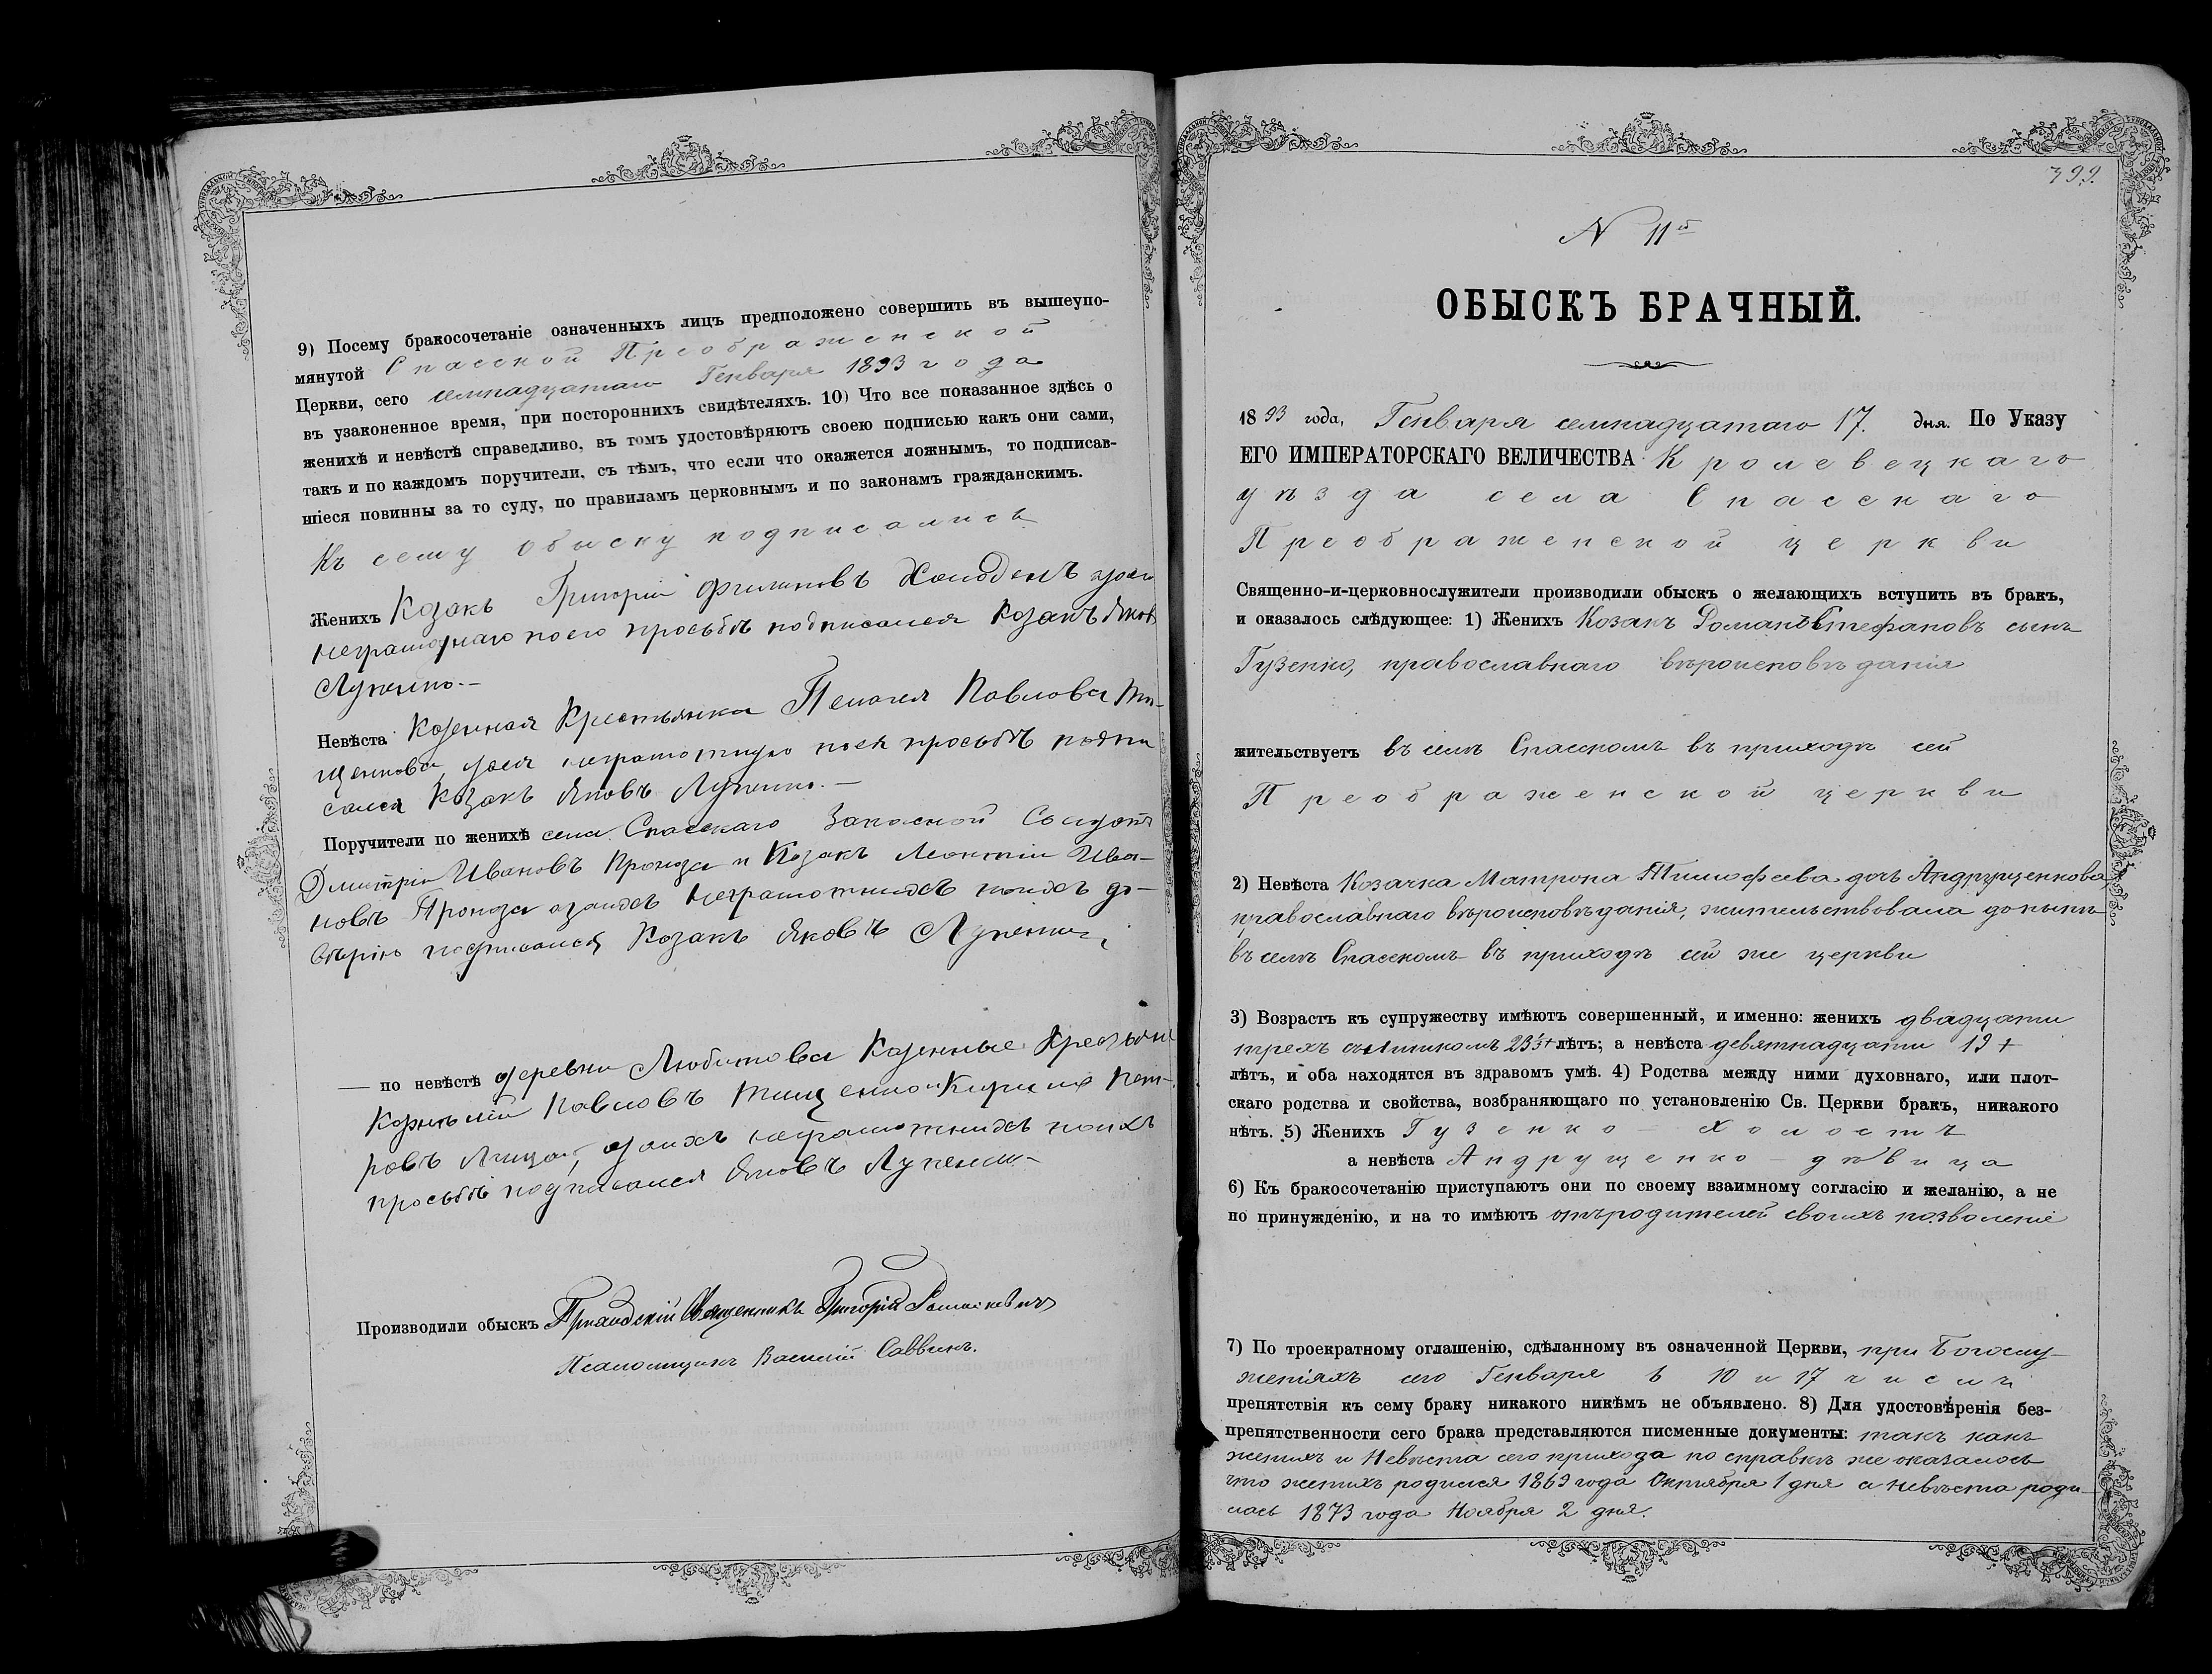 9) Посему бракосочетаніе означенныхъ лицъ предположено совершить въ вышеупо-
мянутой Спасской Преображенской
Церкви, сего семнадцатаго Генваря 1893 года
въ узаконенное время, при постороннихъ свидѣтеляхъ. 10) Что все показанное здѣсь о
женихѣ и невѣстѣ справедливо, въ томъ удостовѣряютъ своею подписью какъ они сами,
такъ и по каждомъ поручители, съ тѣмъ, что если что окажется ложнымъ, то подписав-
шіеся повинны за то суду, по правиламъ церковнымъ и по законамъ гражданскимъ.
Къ сему обыску подписались
Женихъ Козакъ Григорій Филиповъ Холоденъ
неграмотнаго поего просьбѣ подписался Козакъ Яковъ
Лупенко.—
Невѣста Казенная Крестьянка Пелагея Павлова Ти-
щенкова, неграмотную поея просьбѣ подпи
сался Козакъ Яковъ Лупенко.—
Поручители по женихѣ села Спасскаго Запасной
Дмитрій Ивановъ Пронза и Козакъ Леонтій Ива-
новъ Пронза азаихъ неграмотныхъ поихъ до-
вѣрію подписался Козакъ Яковъ Лупенко
— по невѣстѣ деревни Любитова Казенные Крестьяне
Корнилій Павловъ Тищенко и Кирило Пет-
ровъ азаихъ неграмотныхъ поихъ
просьбѣ подписался Яковъ Лупенко—
Производили обыскъ Приходскій Священникъ Григорій
Псаломщикъ Василій Саввинъ.
399.
N 11й
ОБЫСКЪ БРАЧНЫЙ.
1893 года, Генваря семнадцатаго 17. дня. По Указу
ЕГО ИМПЕРАТОРСКАГО ВЕЛИЧЕСТВА Кролевецкаго
уѣзда села Спасскаго
Преображенской церкви
Священно-и-церковнослужители производили обыскъ о желающихъ вступить въ бракъ,
и оказалось слѣдующее: 1) Женихъ Козакъ Романъ Стефановъ сынъ
Гузенко, православнаго вѣроисповѣданія
жительствуетъ въ селѣ Спасскомъ въ приходѣ сей
Преображенской церкви
2) Невѣста Козачка Матрона Тимофеева дочь Андрущенкова,
православнаго вѣроисповѣданія, жительствовала донынѣ
въ селѣ Спасскомъ въ приходѣ сей же церкви
3) Возрастъ къ супружеству имѣютъ совершенный, и именно: женихъ двадцати
трехъ слишкомъ 23 лѣтъ; а невѣста девятнадцати 19 +
лѣтъ, и оба находятся въ здравомъ умѣ. 4) Родства между ними духовнаго, или плот-
скаго родства и свойства, возбраняющаго по установленію Св. Церкви бракъ, никакого
нѣтъ. 5) Женихъ Гузенко — холостъ
а невѣста Андрущенко — дѣвица
6) Къ бракосочетанію приступаютъ они по своему взаимному согласію и желанію, а не
по принужденію, и на то имѣютъ отъ родителей своихъ позволеніе
7) По троекратному оглашенію, сдѣланному въ означенной Церкви, при Богослу-
женіяхъ сего Генваря 6 10 и 17 чиселъ
препятствія къ сему браку никакого никѣмъ не объявлено. 8) Для удостовѣренія без-
препятственности сего брака представляются писменные документы: такъ какъ
женихъ и Невѣста сего прихода по справкѣ же оказалось
что женихъ родился 1869 года Октября 1 дня а невѣста роди
лась 1873 года Ноября 2 дня.